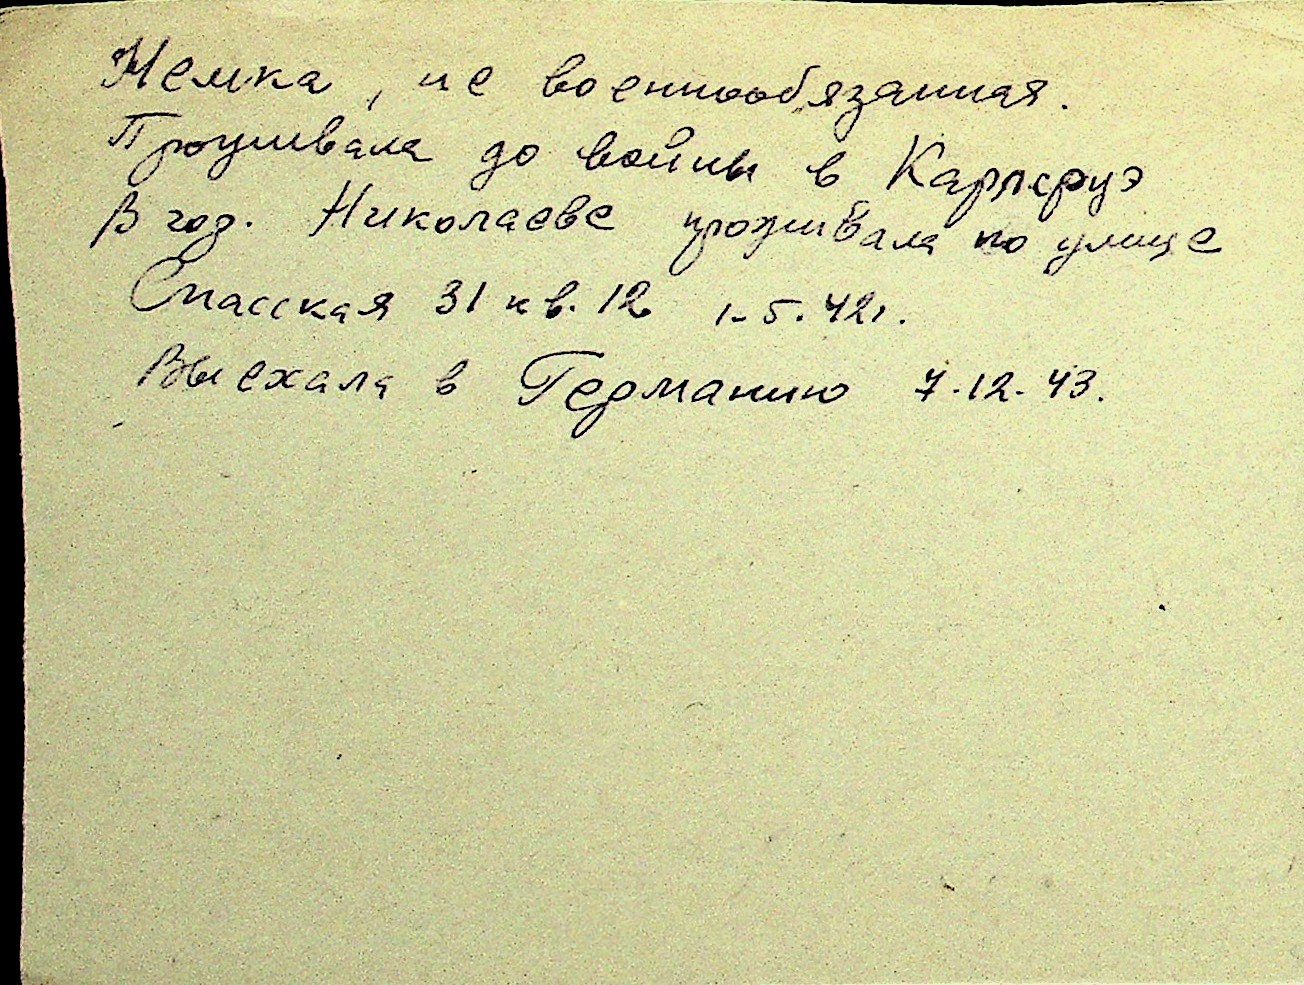 Немка, не военнообязанная.
Проживала до войны в Карлсруэ
В гор. Николаеве проживала по улице
Спасская 31 кв. 12 1-5.42г.
Выехала в Германию 7.12.43.